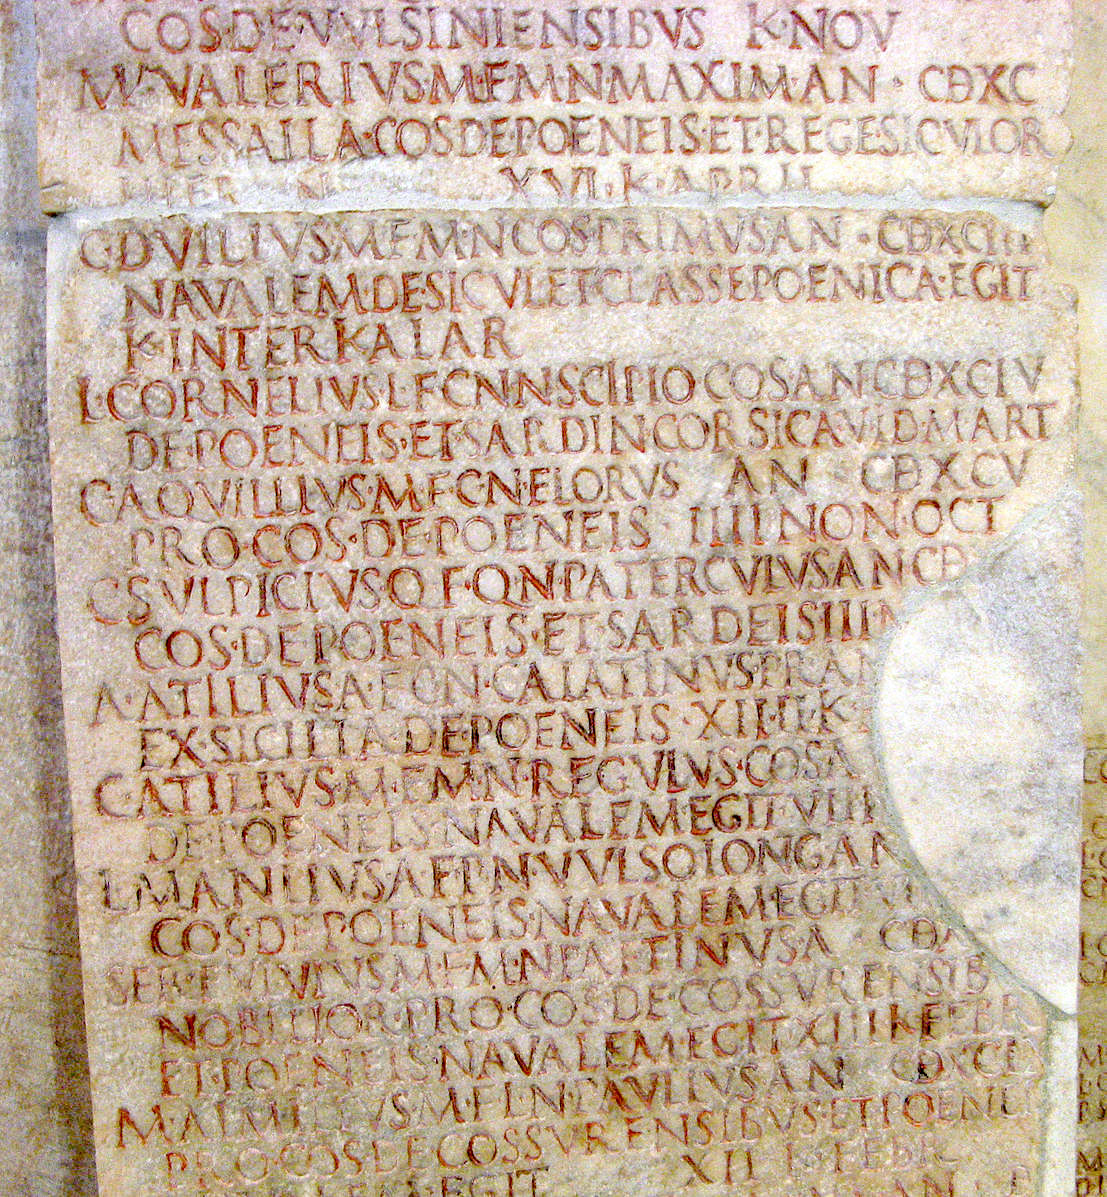 COS·DE·VVLSINIENSIBVS K·NOV
M·VALERIVS·M·F·M·N·MAXIM·AN·CDXC
MESSALLA·COS·DE·POENEIS·ET·REGE·SICVLOR
HIER XVI·K·APRIL
C·DVILIVS·M·F·M·N·COS·PRIMVS·AN·CDXCIII
NAVALEM·DE·SICVL·ET·CLASSE·POENICA·EGIT
K·INTERKALAR
L·CORNELIVS·L·F·CN·N·SCIPIO·COS·AN·CDXCIV
DE·POENEIS·ET·SARDIN·CORSICA·V·ID·MART
C·AQVILLIVS·M·F·C·N·FLORVS AN CDXCV
PRO·COS·DE·POENEIS·IIII·NON·OCT
C·SVLPICIVS·Q·F·Q·N·PATERCVLVS·AN·CD
COS·DE·POENEIS·ET·SARDEIS·III·N
A·ATILIVS·A·F·C·N·CALATINVS·PR·AN
EX·SICILIA·DE·POENEIS·XIIII·K
C·ATILIVS·M·F·M·N·REGVLVS·COS·A
DE·POENEIS·NAVALEM·EGIT·VIII
L·MANLIVS·A·F·P·N·VVLSO·LONG·AN
COS·DE·POENEIS·NAVALEM·EGIT·VI
SER·FVLVIVS·M·F·M·N·PAETINVS·A CDX
NOBILIOR·PRO·COS·DE·COSSVRENSIB
ET·POENEIS·NAVALEM·EGIT·XIII·K·FEBR
M·AIMILIVS·M·F·L·N·PAVLLVS·AN CDXCIX
PRO·COS·DE·COSSVRENSIBVS·ET·POENEI
EGIT XII K·FEBR